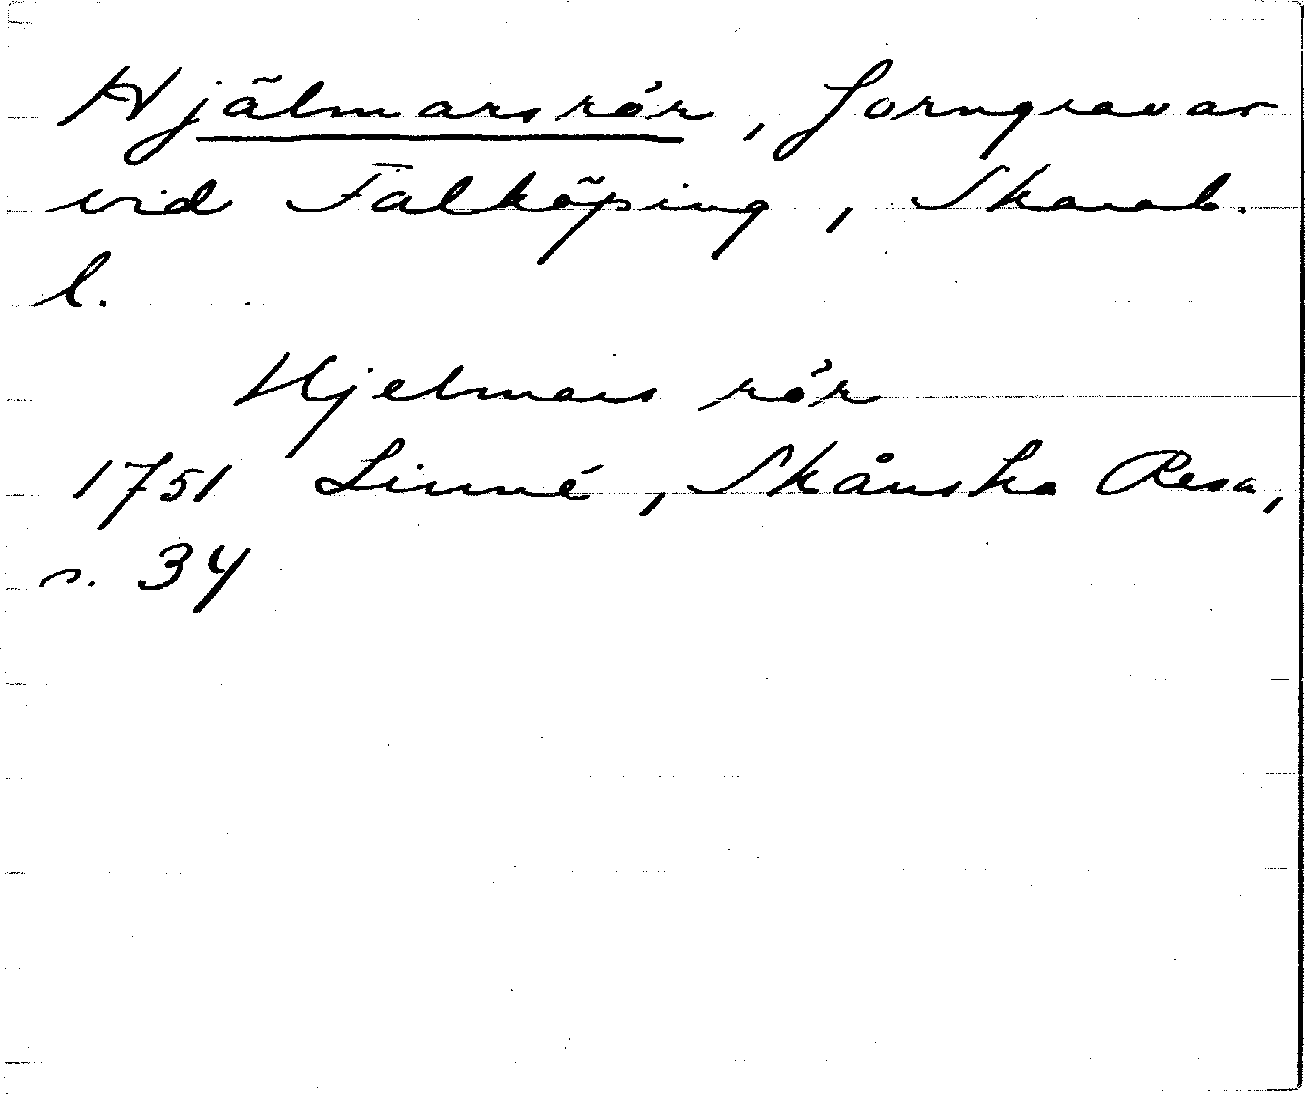 Hjälmarsrör, forngravar
vid Falköping, Skarab.
l.
Hjelmars rör
1751 Linné, Skånska Resa,
s. 34